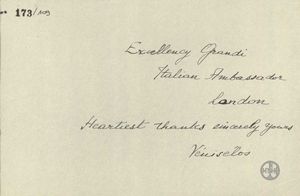 173/109
Excellency Grandi
Italian Ambassador
London
Heartiest thanks sincerely yours
Véniselos